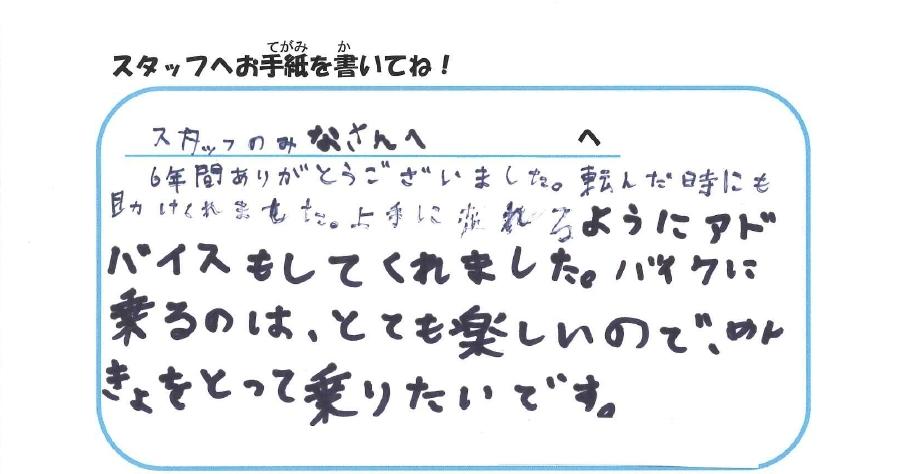 てがみ か
スタッフへお手紙を書いてね！
スタッフのみなさんへ へ
6年間ありがとうございました。転んだ時にも
助けくれました。上手に乗れるようにアド
バイスもしてくれました。バイクに
乗るのは、とても楽しいので、めん
きょをとって乗りたいです。